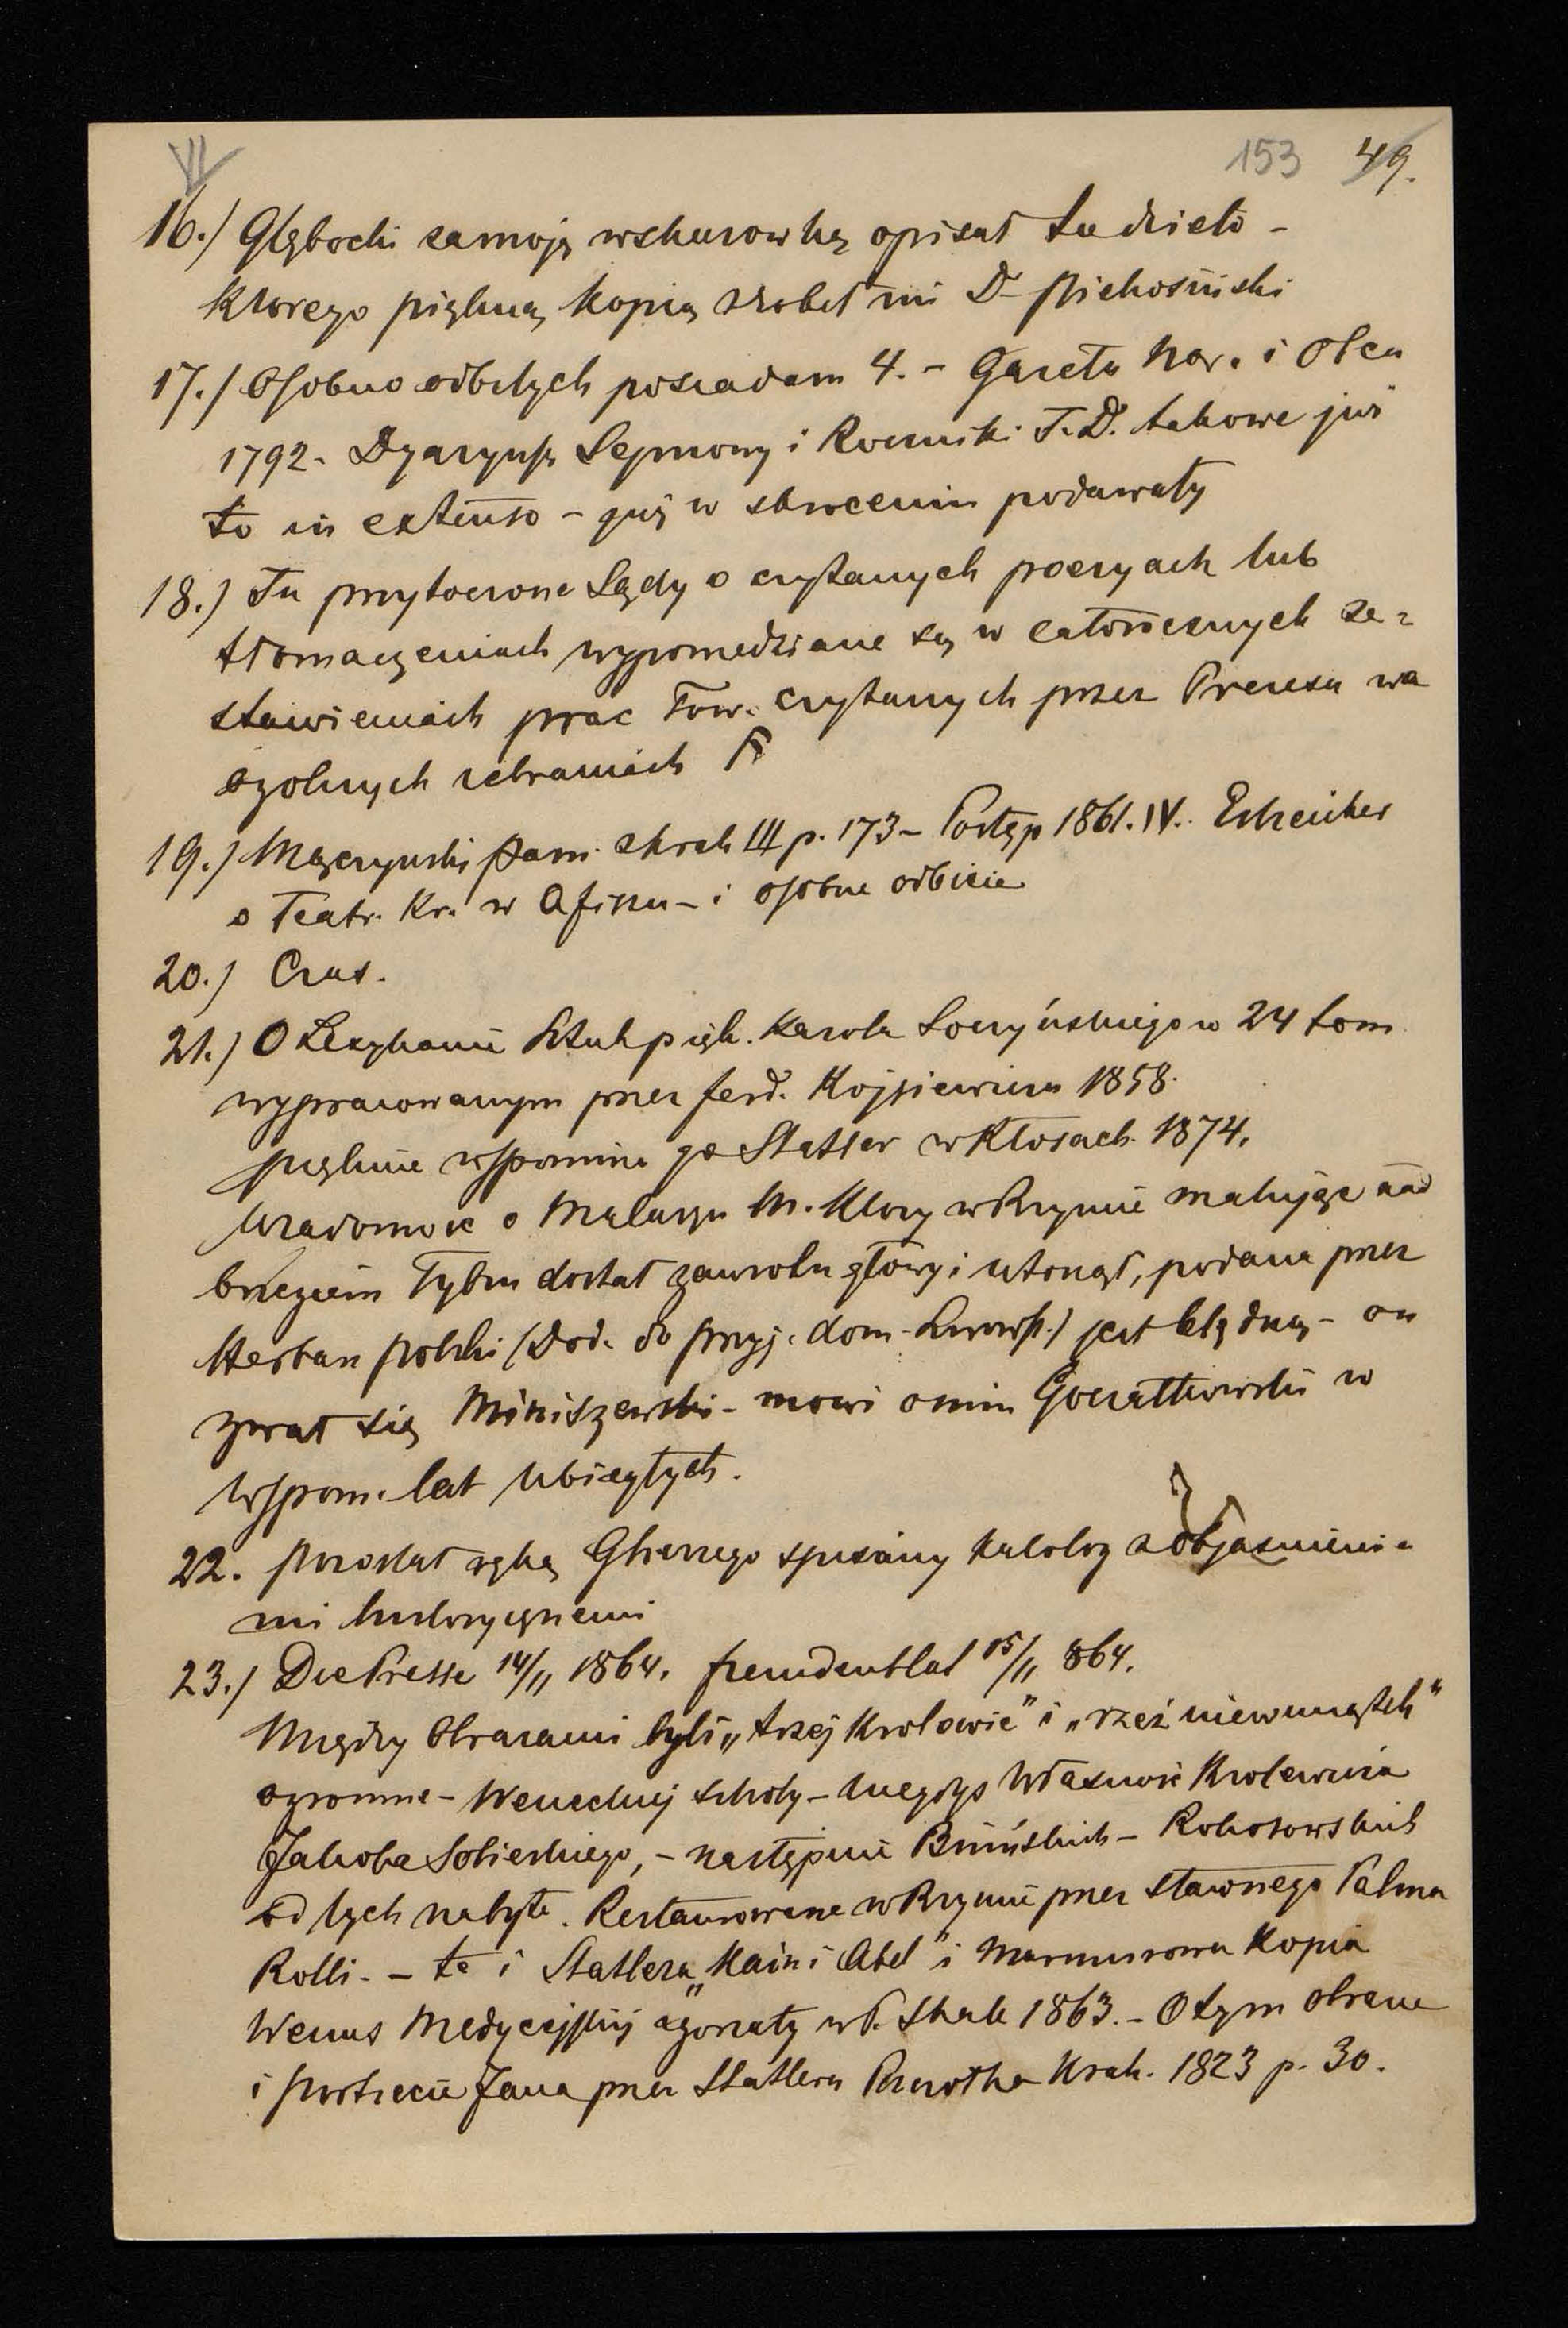 VI
153 49.
16.) Głębocki samoją wskurowką opisał tu dzieło -
Ktorego piękną kopią zrobił mi D- Piekosiński
17.) Osobno odbitych posiadam 4. - Gazeta Nar. i Obca
1792. Dyaryusz Sejmowy i Roczniki T. D. takowe już
to in extenso - już w skroceniu podawały
18.) Tu przytoczone Sądy o czytanych poezyach lub
tłomaczeniach wypowiedziane są w całorocznych ze=
stawieniach prac Tow. czytanych przez Prezesa na
ogolnych zebraniach
19.) Mączyński Pam. z Krak III p. 173 - Postęp 1861. IV. Estreicher
o Teatr. Kr. w Afiszu - i osobne odbicie
20.) Czas.
21.) O Lexykonie Sztuk pięk. Karola Soczyńskiego w 24 tom
wypracowanym przez ferd. Kojsiewicza 1858.
pięknie wspomina go Statler w Kłosach 1874.
Wiadomość o Malarzu M. Ktory w Rzymie malując nad
brzegiem Tybru dostał zawrotu głowy i utonął, podana przez
Herbarz polski (Dod. do Przyj. dom. Lwowsk.) jest błędną - on
zwał się Miniszewski - mowi o nim Goczałkowski w
Wspom. lat ubiegłych.
22. pozostał ręką Gł spisany katalog z objasnieni=
mi historycznemi
23.) Die Presse 14/11 1864. fremdenblat 15/11 864.
Między Obrazami były „trzej Krolowie" i „rzeź niewiniątek"
ogromne - Weneckiej szkoły - niegdys Własność Krolewicza
Jakoba Sobieskiego, - następnie Bnińskich - Rokosowskich
od tych nabyte. Restaurowane w Rzymie przez sławnego Palma
Rolli. - te i Statlera „Kain i Abel" i Marmurowa Kopia
Wenus Medycejskiej zgorzały w P. Skale 1863. - O tym obrazie
i portrecie Jana przez Statlera Pszczołka Krak. 1823 p. 30.